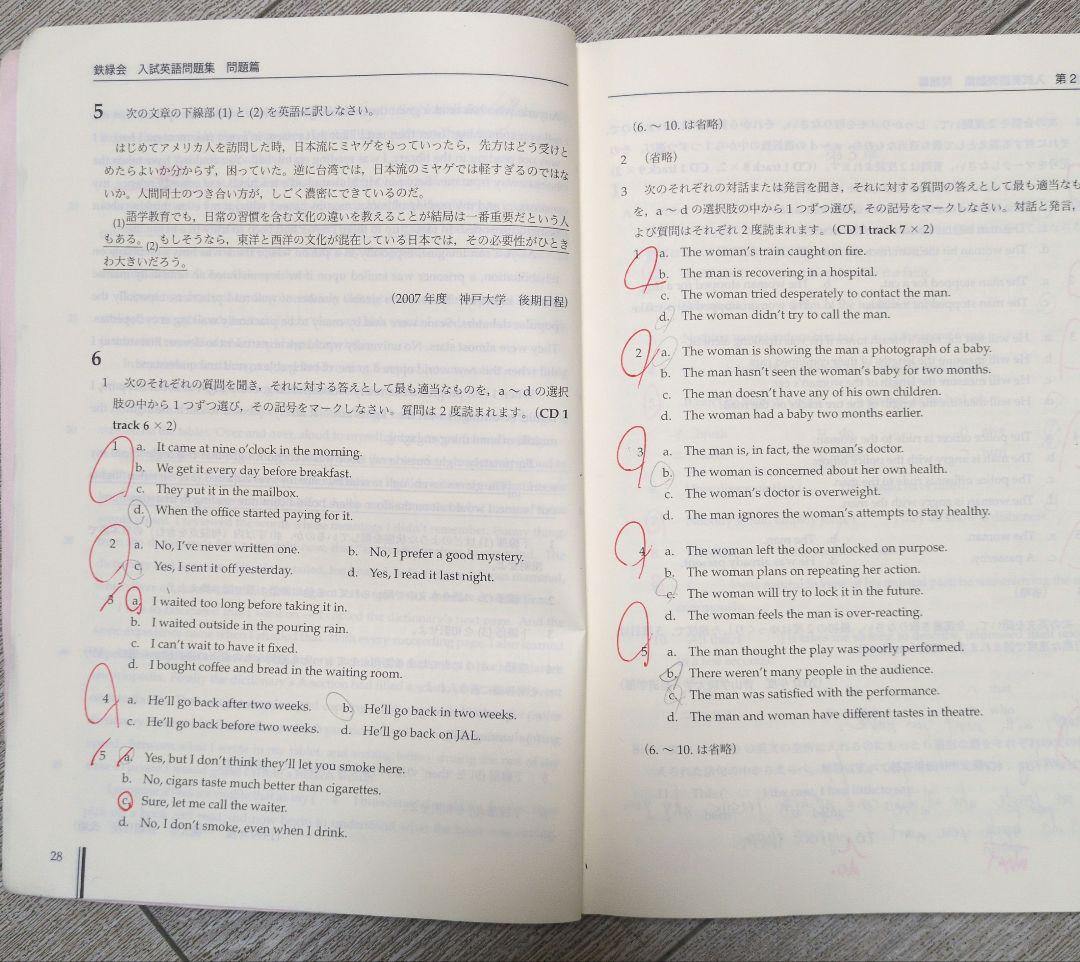 鉄緑会 入試英語問題集 問題篇
5 次の文章の下線部 (1) と (2) を英語に訳しなさい。
はじめてアメリカ人を訪問した時，日本流にミヤゲをもっていったら，先方はどう受けと
めたらよいか分からず，困っていた。逆に台湾では，日本流のミヤゲでは軽すぎるのではな
いか。人間同士のつき合い方が，しごく濃密にできているのだ。
(1)語学教育でも，日常の習慣を含む文化の違いを教えることが結局は一番重要だという人
もある。(2)もしそうなら，東洋と西洋の文化が混在している日本では，その必要性がひとき
わ大きいだろう。
(2007 年度 神戸大学 後期日程)
6
1 次のそれぞれの質問を聞き，それに対する答えとして最も適当なものを，a 〜 d の選択
肢の中から 1 つずつ選び，その記号をマークしなさい。質問は 2 度読まれます。(CD 1
track 6 × 2)
1 a. It came at nine o'clock in the morning.
b. We get it every day before breakfast.
c. They put it in the mailbox.
d. When the office started paying for it.
2 a. No, I've never written one. b. No, I prefer a good mystery.
c. Yes, I sent it off yesterday. d. Yes, I read it last night.
3 a. I waited too long before taking it in.
b. I waited outside in the pouring rain.
c. I can't wait to have it fixed.
d. I bought coffee and bread in the waiting room.
4 a. He'll go back after two weeks. b. He'll go back in two weeks.
c. He'll go back before two weeks. d. He'll go back on JAL.
5 a. Yes, but I don't think they'll let you smoke here.
b. No, cigars taste much better than cigarettes.
c. Sure, let me call the waiter.
d. No, I don't smoke, even when I drink.
28
第 2
(6. 〜 10. は省略)
2 (省略)
3 次のそれぞれの対話または発言を聞き，それに対する質問の答えとして最も適当なも
を，a 〜 d の選択肢の中から 1 つずつ選び，その記号をマークしなさい。対話と発言，
よび質問はそれぞれ 2 度読まれます。(CD 1 track 7 × 2)
1 a. The woman's train caught on fire.
b. The man is recovering in a hospital.
c. The woman tried desperately to contact the man.
d. The woman didn't try to call the man.
2 a. The woman is showing the man a photograph of a baby.
b. The man hasn't seen the woman's baby for two months.
c. The man doesn't have any of his own children.
d. The woman had a baby two months earlier.
3 a. The man is, in fact, the woman's doctor.
b. The woman is concerned about her own health.
c. The woman's doctor is overweight.
d. The man ignores the woman's attempts to stay healthy.
4 a. The woman left the door unlocked on purpose.
b. The woman plans on repeating her action.
c. The woman will try to lock it in the future.
d. The woman feels the man is over-reacting.
5 a. The man thought the play was poorly performed.
b. There weren't many people in the audience.
c. The man was satisfied with the performance.
d. The man and woman have different tastes in theatre.
(6. 〜 10. は省略)